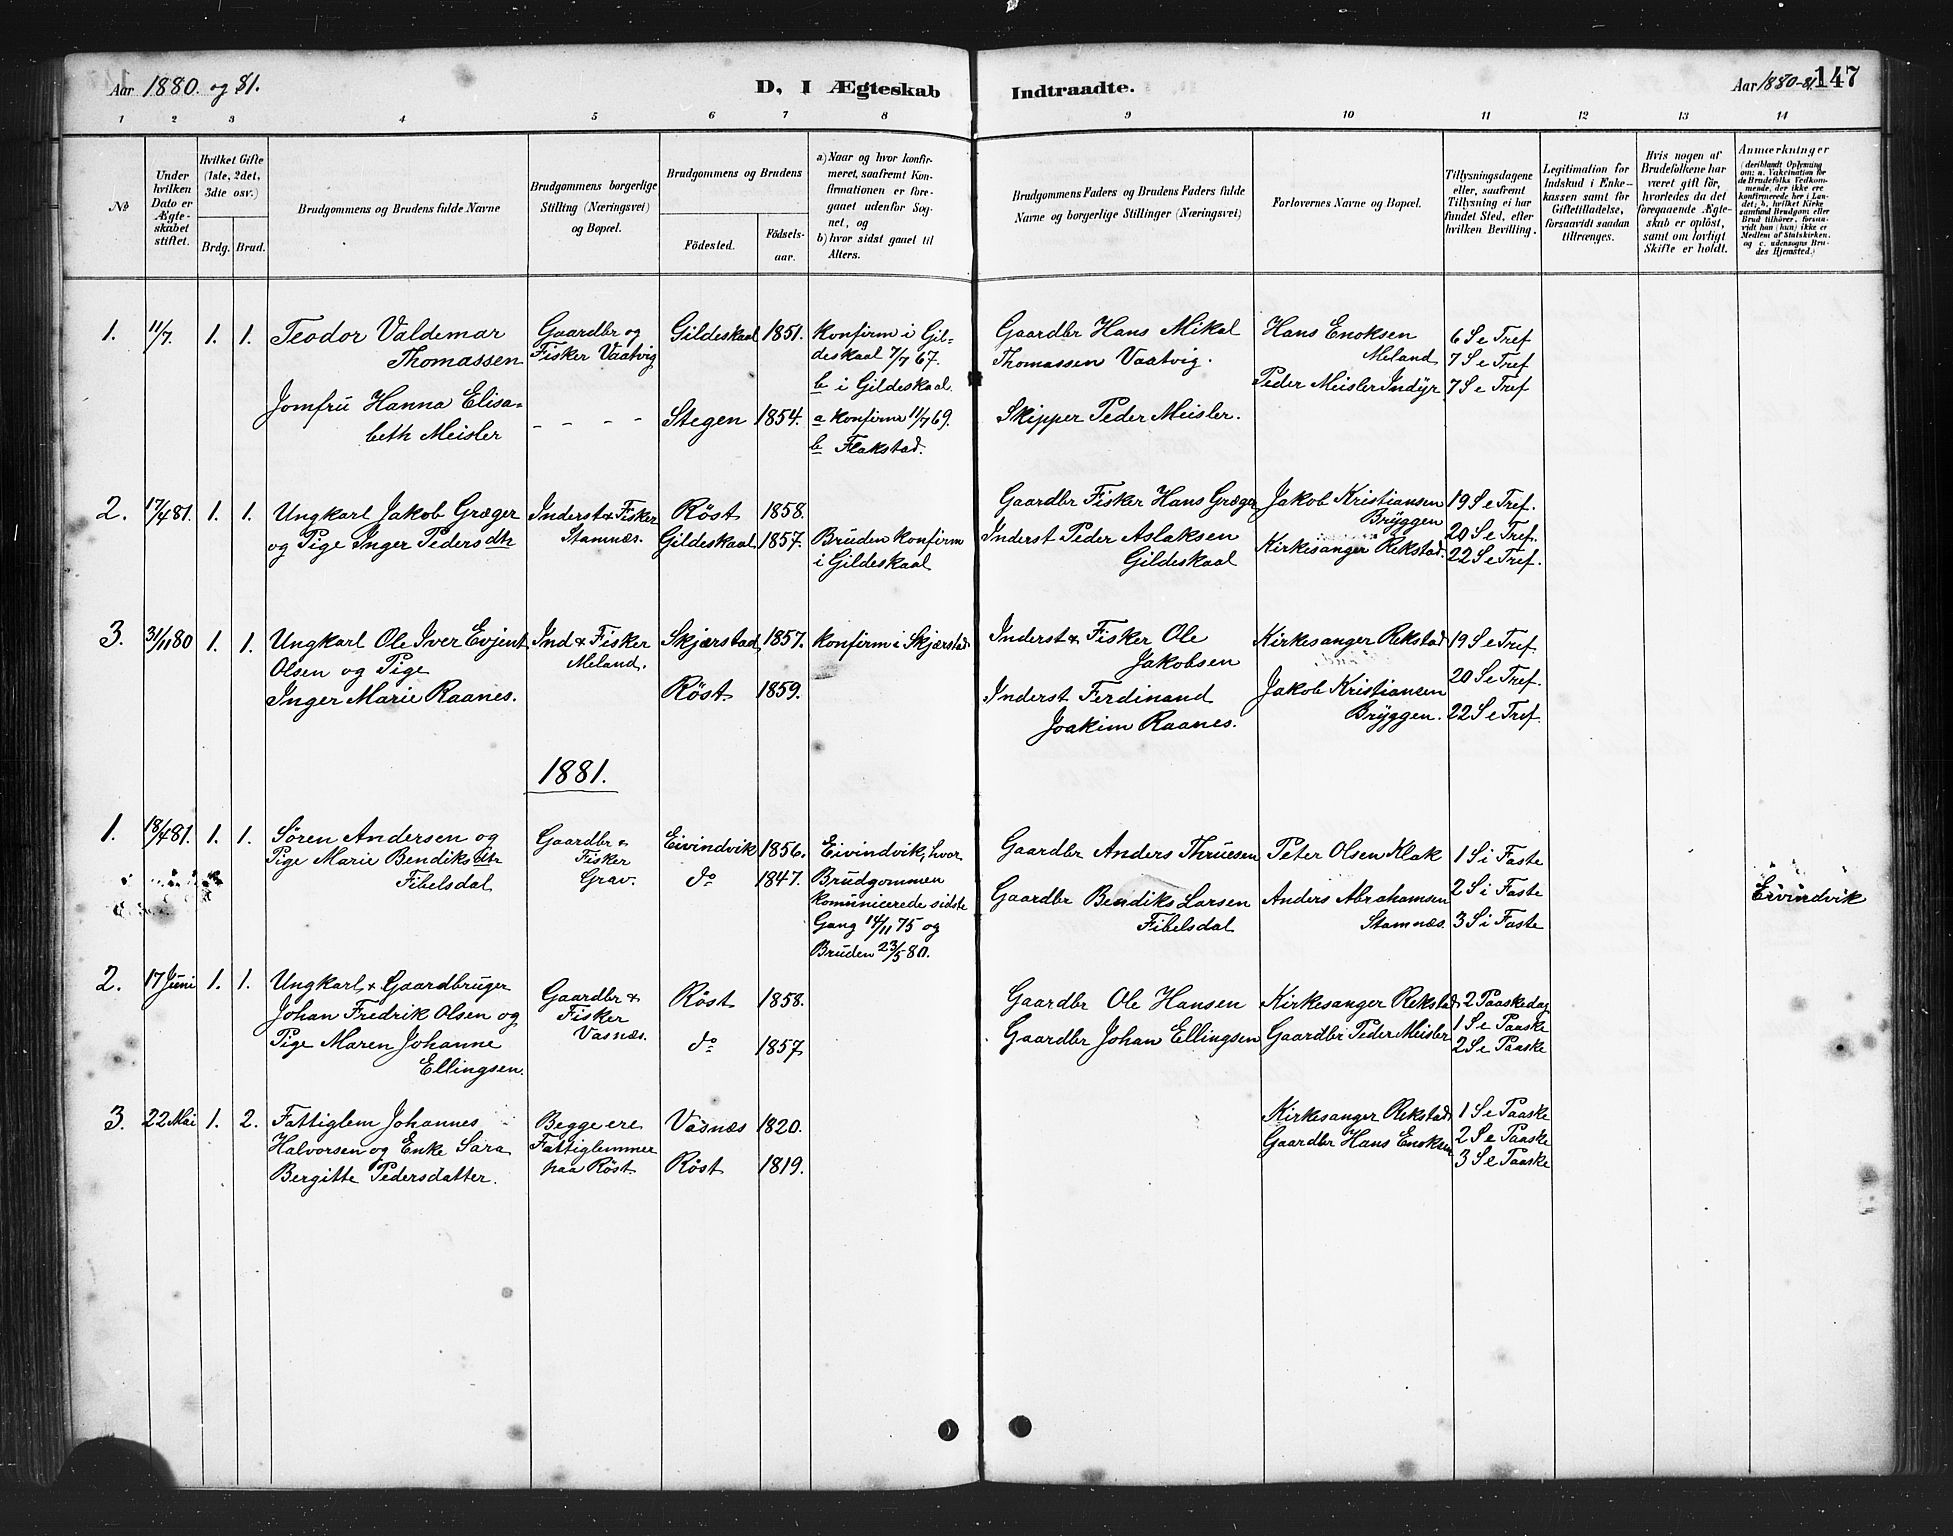 Aar 1880. og 81.
D, I Ægteskab
Indtraadte.
Aar 1880-81. 147
1 2 3 4 5 6 7 8 9 10 11 12 13 14
No
Under
hvilken
Dato er
Ægte-
skabet
stiftet.
Hvilket Gifte
(1ste, 2det,
3die osv.)
Brdg. Brud.
Brudgommens og Brudens fulde Navne
Brudgommens borgerlige
Stilling (Næringsvei)
og Bopæl.
Brudgommens og Brudens
Fødested.
Fødsels-
aar.
a) Naar og hvor konfir-
meret, saafremt Kon-
firmationen er fore-
gaaet udenfor Sog-
net, og
b) hvor sidst gaaet til
Alters.
Brudgommens Faders og Brudens Faders fulde
Navne og borgerlige Stillinger (Næringsvei)
Forlovernes Navne og Bopæl.
Tillysningsdagene
eller, saafremt
Tillysning ei har
fundet Sted, efter
hvilken Bevilling.
Legitimation for
Indskud i Enke-
kassen samt for
Giftetilladelse,
forsaavidt saadan
tiltrænges.
Hvis nogen af
Brudefolkene har
været gift før,
hvorledes da det
foregaaende Ægte-
skab er opløst,
samt om lovligt
Skifte er holdt.
Anmærkninger
(deriblandt Oplysning
om: a. Vakcination for
de Brudefolks Vedkom-
mende, der ikke ere
konfirmerede her i Lan-
det; b. hvilket Kirke
samfund Brudgom eller
Brud tilhører, forsaa-
vidt han (hun) ikke er
Medlem af Statskirken.
og c. udensogns Bru-
des Hjemsted.)
1. 11/7. 1. 1. Teodor Valdemar
Thomassen
Gaardbr og
Fisker Vaatvig
Gildeskaal 1851.
Konfirm i Gil-
deskaal 7/7 67.
b i Gildeskaal.
Gaardbr Hans Mikal
Thomassen Vaatvig.
Hans Enoksen
Meland
Peder Meisler Indyr
6 S e Tref
7 S e Tref
7 S e Tref
Jomfru Hanna Elisa-
beth Meisler
- - - -
Stegen 1854.
a konfirm 11/7 69.
b Flakstad.
Skipper Peder Meisler.
2. 17/4 81. 1. 1. Ungkarl Jakob Græger
og Pige Inger Pedersdtr
Inderst & Fisker
Stamnæs.
Röst 1858.
Gildeskaal 1857.
Bruden konfirm
i Gildeskaal
Gaardbr Fisker Hans Græger
Inderst Peder Aslaksen
Gildeskaal
Jakob Kristiansen
Bryggen
Kirkesanger Rekstad.
19 S e Tref.
20 S e Tref.
22 S e Tref.
3. 31/11 80 1. 1. Ungkarl Ole Iver Evjent
Olsen og Pige
Inger Marie Raanes.
Ind & Fisker
Meland.
Skjærstad 1857.
Röst 1859.
Konfirm i Skjærstad
Inderst & Fisker Ole
Jakobsen
Inderst Ferdinand
Joakim Raanes.
Kirkesanger Rekstad
Jakob Kristiansen
Bryggen.
19 S e Tref.
20 S e Tref.
22 S e Tref.
1881.
1. 18/4 81. 1. 1. Søren Andersen og
Pige Marie Bendiksdtr
Fibelsdal
Gaardbr &
Fisker
Grav.
Eivindvik 1856.
do 1847.
Eivindvik, hvor
Brudgommen
komunicerede sidste
Gang 14/11 75 og
Bruden 23/5 80.
Gaardbr Anders Thruesen
Gaardbr Bendiks Larsen
Fibelsdal
Peter Olsen Klak
Anders Abrahamsen
Stamnæs.
1 S i Faste
2 S i Faste
3 S i Faste
Eivindvik
2. 17 Juni 1. 1. Ungkarl, & Gaardbruger
Johan Fredrik Olsen og
Pige Maren Johanne
Ellingsen.
Gaardbr &
Fisker
Vasnæs.
Röst 1858.
do 1857
Gaardbr Ole Hansen
Gaardbr Johan Ellingsen
Kirkesanger Rekstad
Gaardbr Peder Meisler
2 Paaskedag
1 S e Paaske
2 S e Paaske
3. 22 Mai 1. 2. Fattiglem Johannes
Halvorsen og Enke Sara
Bergitte Pedersdatter.
Begge ere
Fattiglemmer
paa Röst
Vasnæs 1820.
Röst 1819.
Kirkesanger Rekstad
Gaardbr Hans Enoksen
1 S e Paaske
2 S e Paaske
3 S e Paaske